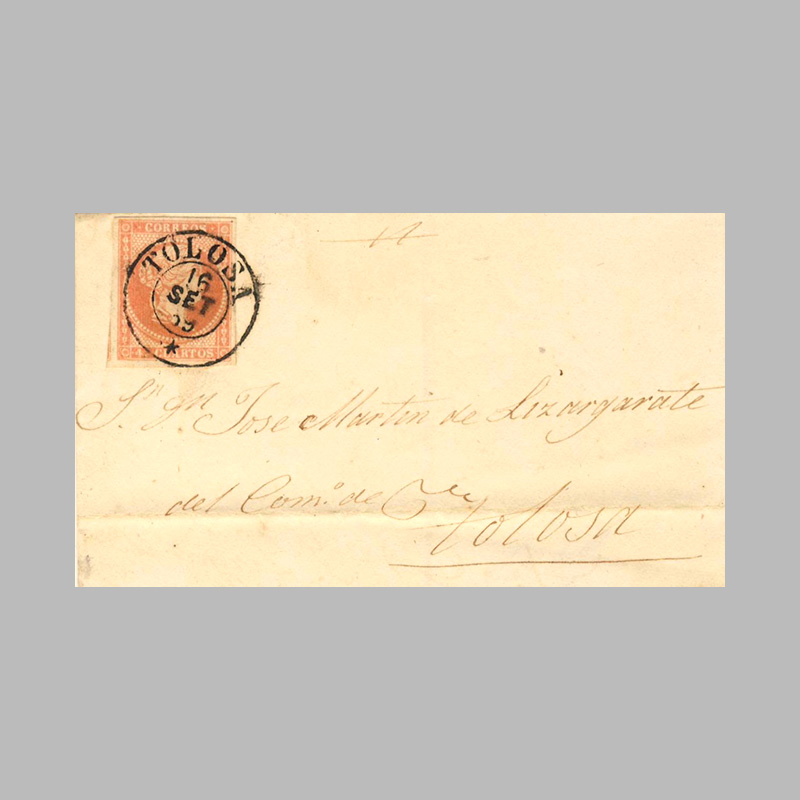 CORREOS
TOLOSA
16
SET
CUARTOS
Sr. Dn Jose Martin de Lizargarate
del Como. de
Tolosa